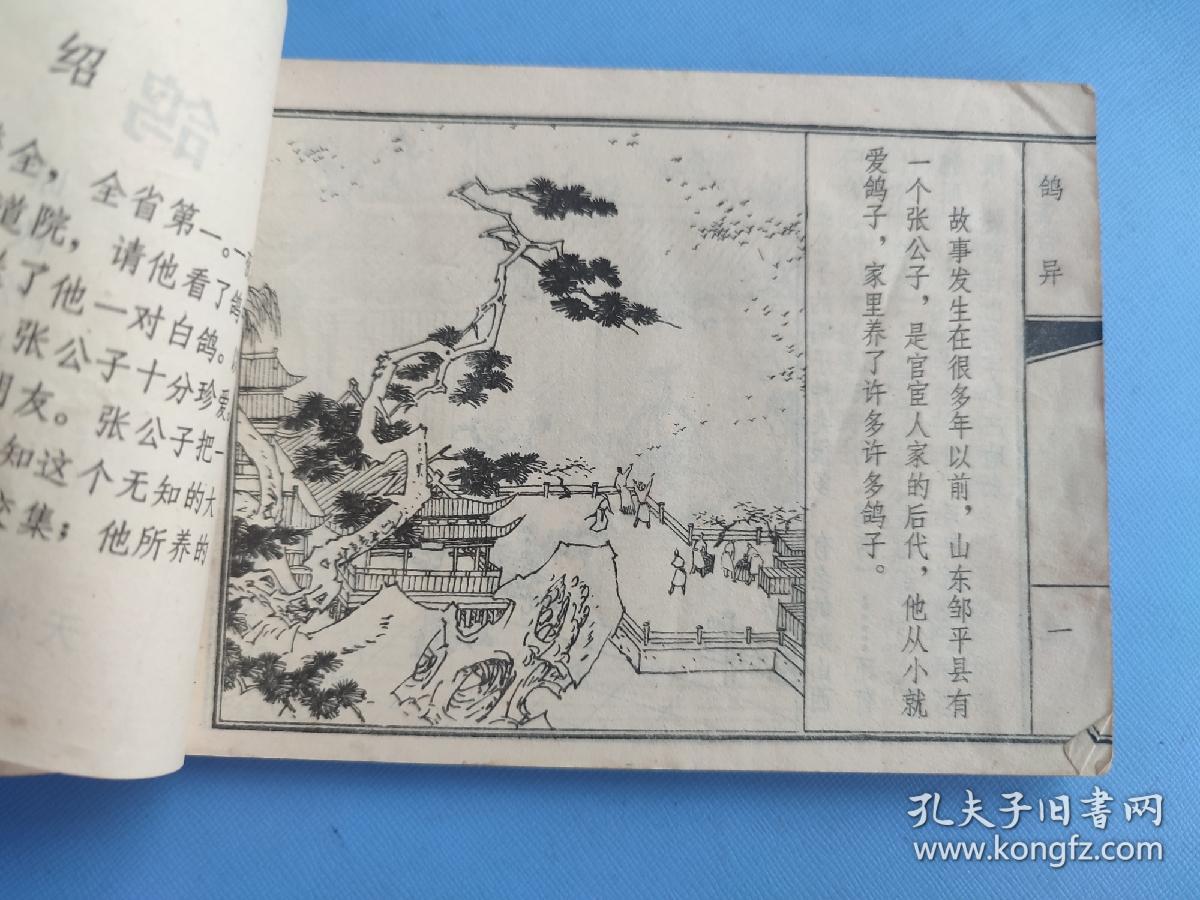 绍
全，全省第一。
道院，请他看了鸽
了他一对白鸽。
张公子十分珍爱
友。张公子把一
知这个无知的大
集；他所养的
天
鸽
故事发生在很多年以前，山东邹平县有
一个张公子，是官宦人家的后代，他从小就
爱鸽子，家里养了许多许多鸽子。
鸽异
一
孔夫子旧书网
www.kongfz.com